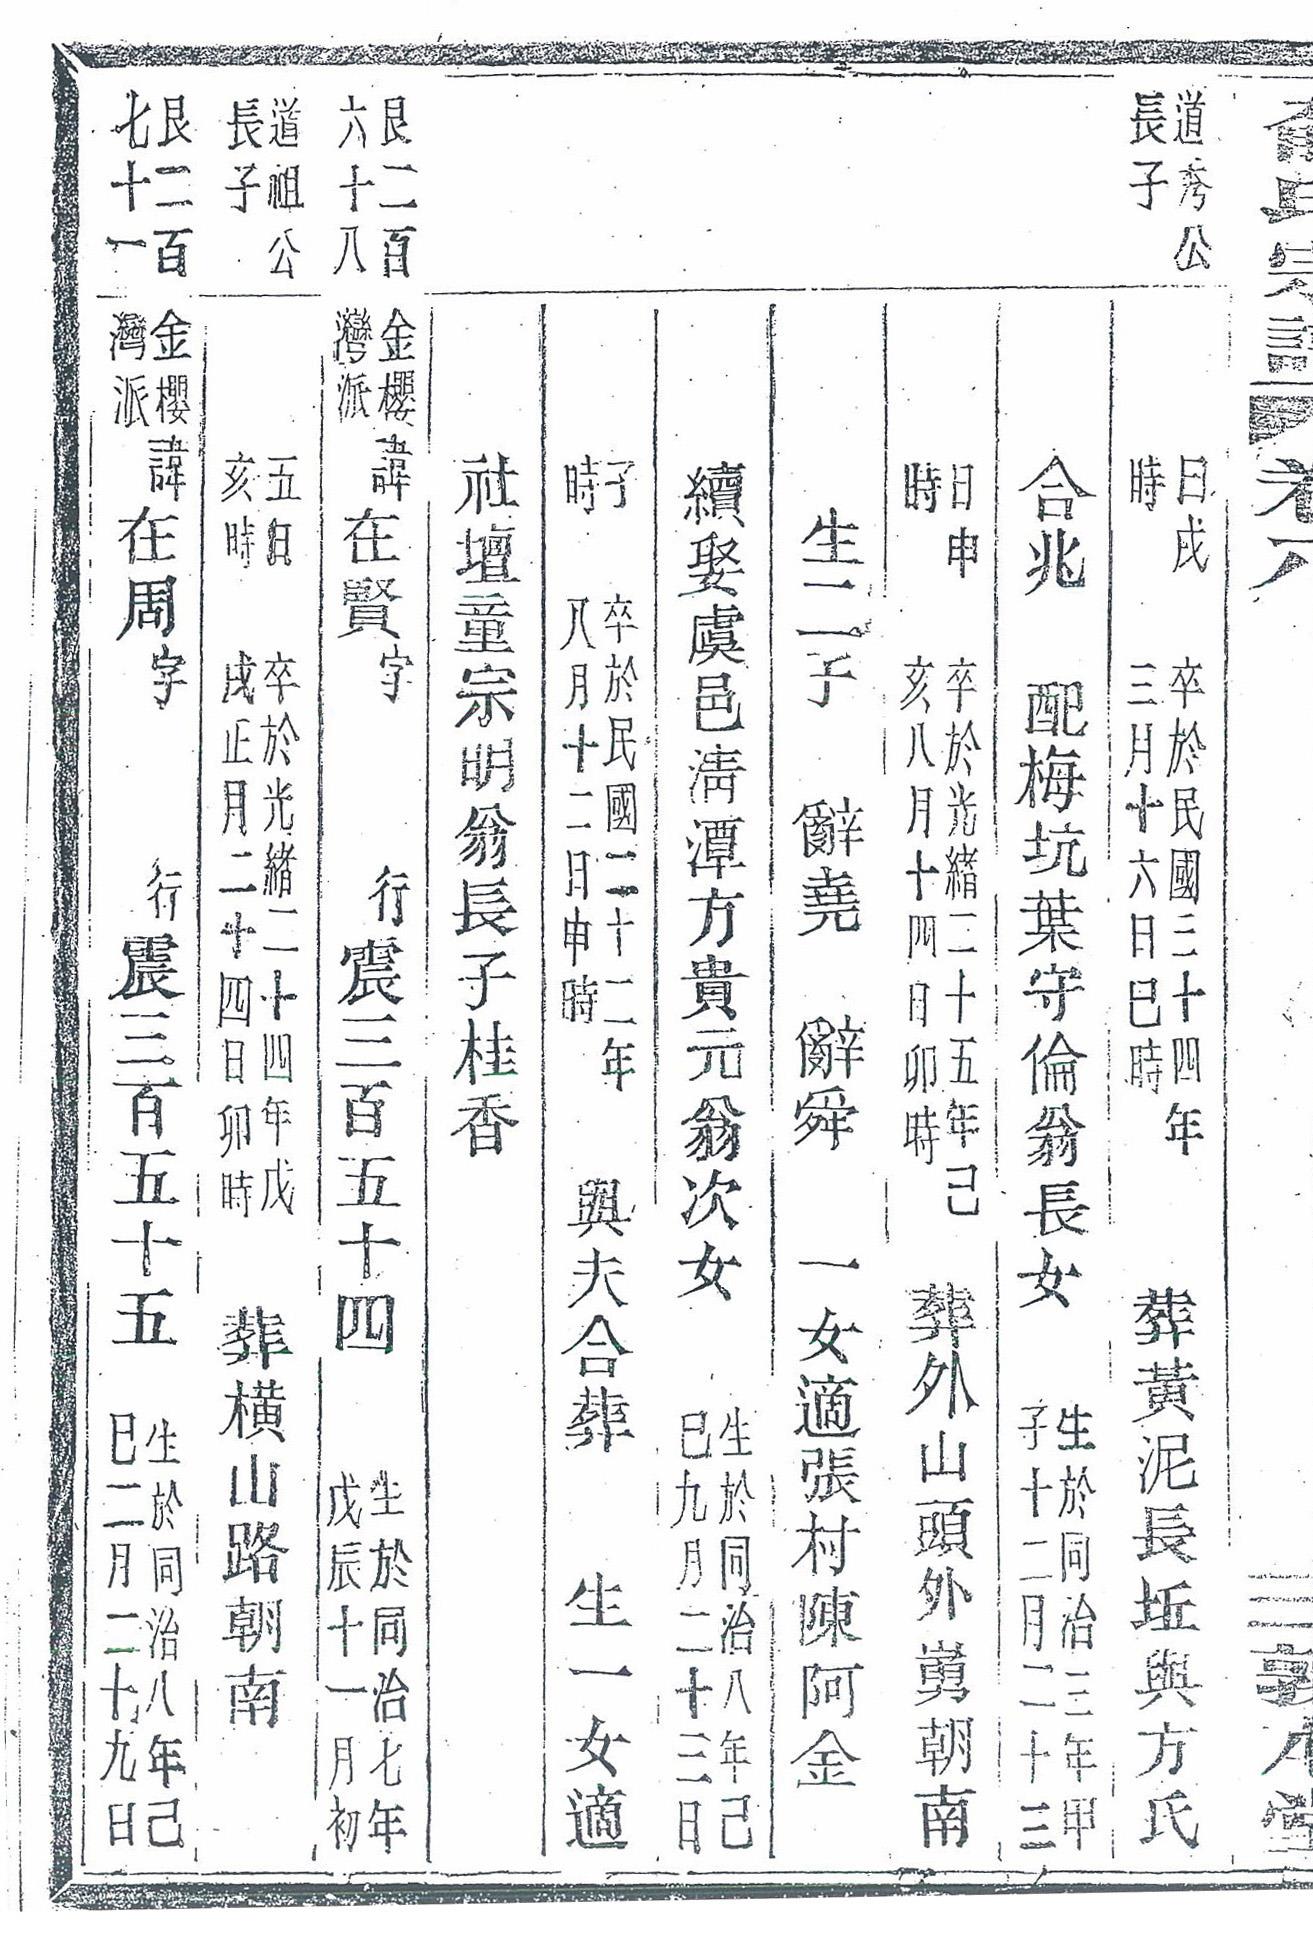 卷八
道考公
長子
日戌
時
卒於民國三十四年
三月十六日巳時
葬黃泥長坵與方氏
合兆 配梅坑葉守倫翁長女
生於同治三年甲
子十二月二十三
日申
時
卒於光緒二十五年己
亥八月十四日卯時
葬外山頭外嶴朝南
生二子 辭堯 辭舜 一女適張村陳阿金
續娶虞邑淸潭方貴元翁次女
生於同治八年己
巳九月二十三日
子
時
卒於民國二十二年
八月十二日申時
與夫合葬 生一女適
社壇童宗明翁長子桂香
艮二百
六十八
金櫻
灣派
諱在賢字 行震三百五十四
生於同治七年
戊辰十一月初
道祖公
長子
五日
亥時
卒於光緒二十四年戊
戌正月二十四日卯時
葬橫山路朝南
艮二百
七十一
金櫻
灣派
諱在周字 行震三百五十五
生於同治八年己
巳二月二十九日